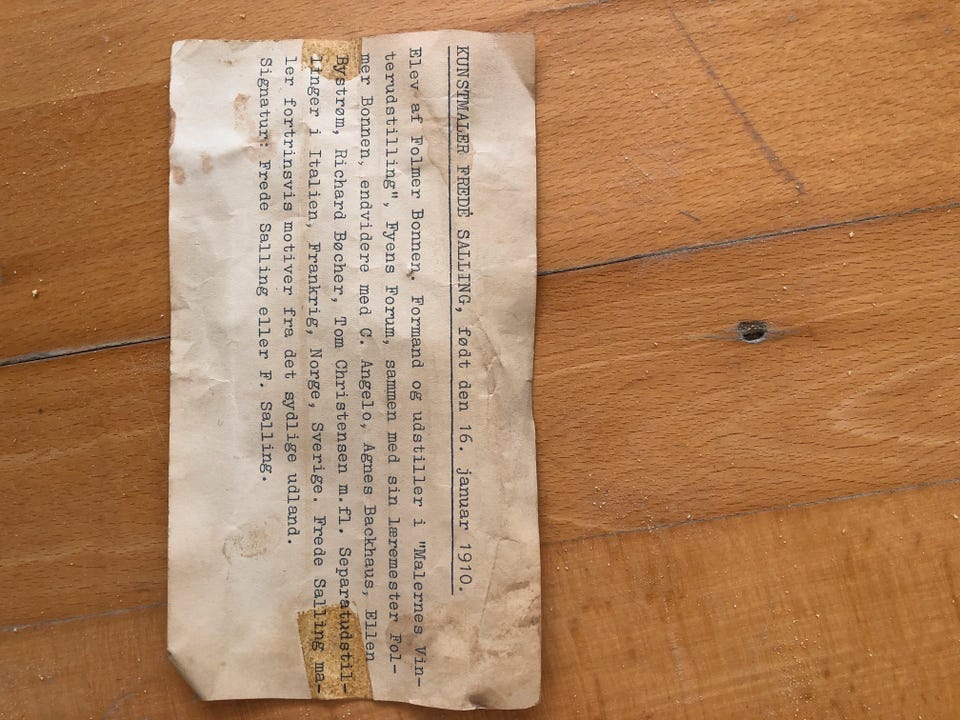 KUNSTMALER FREDE SALLING, født den 16. januar 1910.
Elev af Folmer Bonnen. Formand og udstiller i "Malernes Vin-
terudstilling", Fyens Forum, sammen med sin læremester Fol-
mer Bonnen, endvidere med C. Angelo, Agnes Backhaus, Ellen
Bystrøm, Richard Bøcher, Tom Christensen m.fl. Separatudstil-
linger i Italien, Frankrig, Norge, Sverige. Frede Salling ma-
ler fortrinsvis motiver fra det sydlige udland.
Signatur: Frede Salling eller F. Salling.